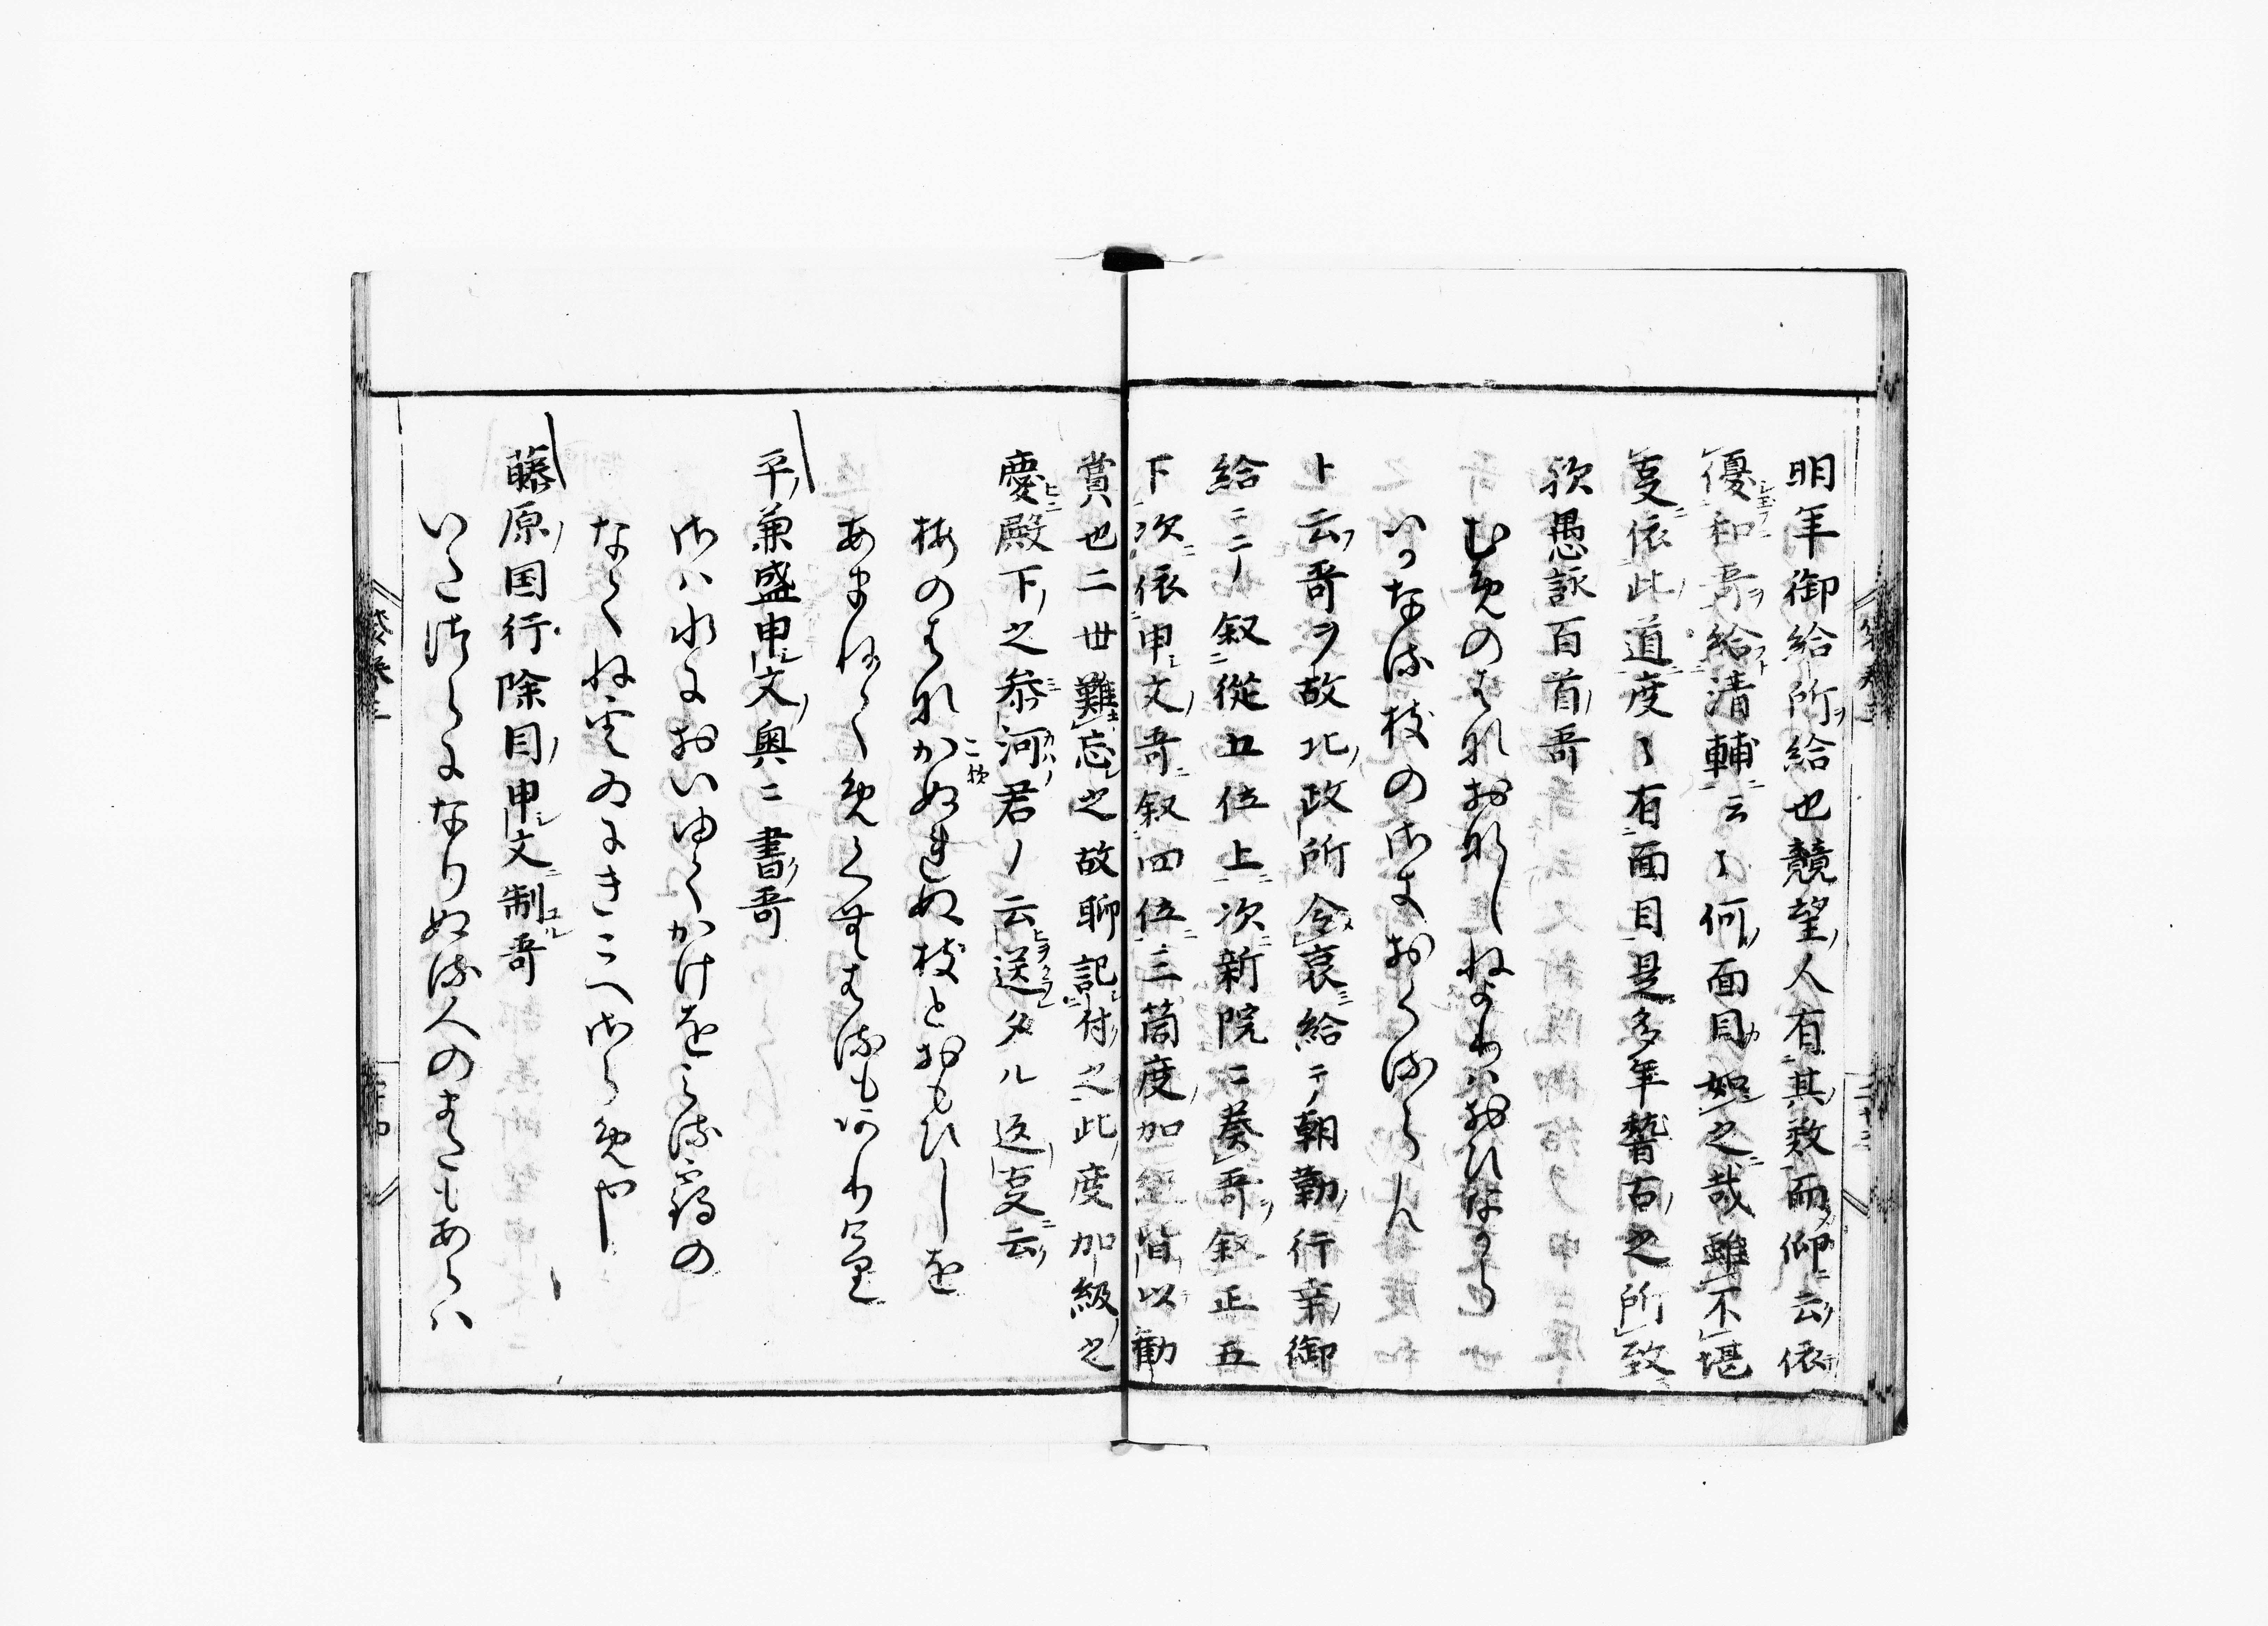 明年御給所ヲ給也競望ノ人有其数而仰ニ云依
優和哥ヲ給清輔ニ云々何面目カ如之哉雖不堪
叓依此道度々有面目是多年誓古之所致
欤愚詠百首哥
むめのはなおなしねよりはおひなから
いかなる枝のさきおくるらん
ト云哥ヲ故北政所令哀給テ朝勤行幸御
給ニテ叙従五位上次新院ニ奏哥叙正五
下次依申文哥叙四位三箇度加級皆以勧
賞也二世難忘之故聊記付之此度加級之
慶殿下之参河君ノ云送タル返叓云
梅のはなかれぬる枝とおもひしを
こ枝
あまねくめくむはるもありけり
平兼盛申文奥ニ書哥
さは水においゆくかけをみる鶴の
なくね雲ゐにきこへさらめや
藤原国行除目申文制哥
いたつらになりぬる人のまたもあらは